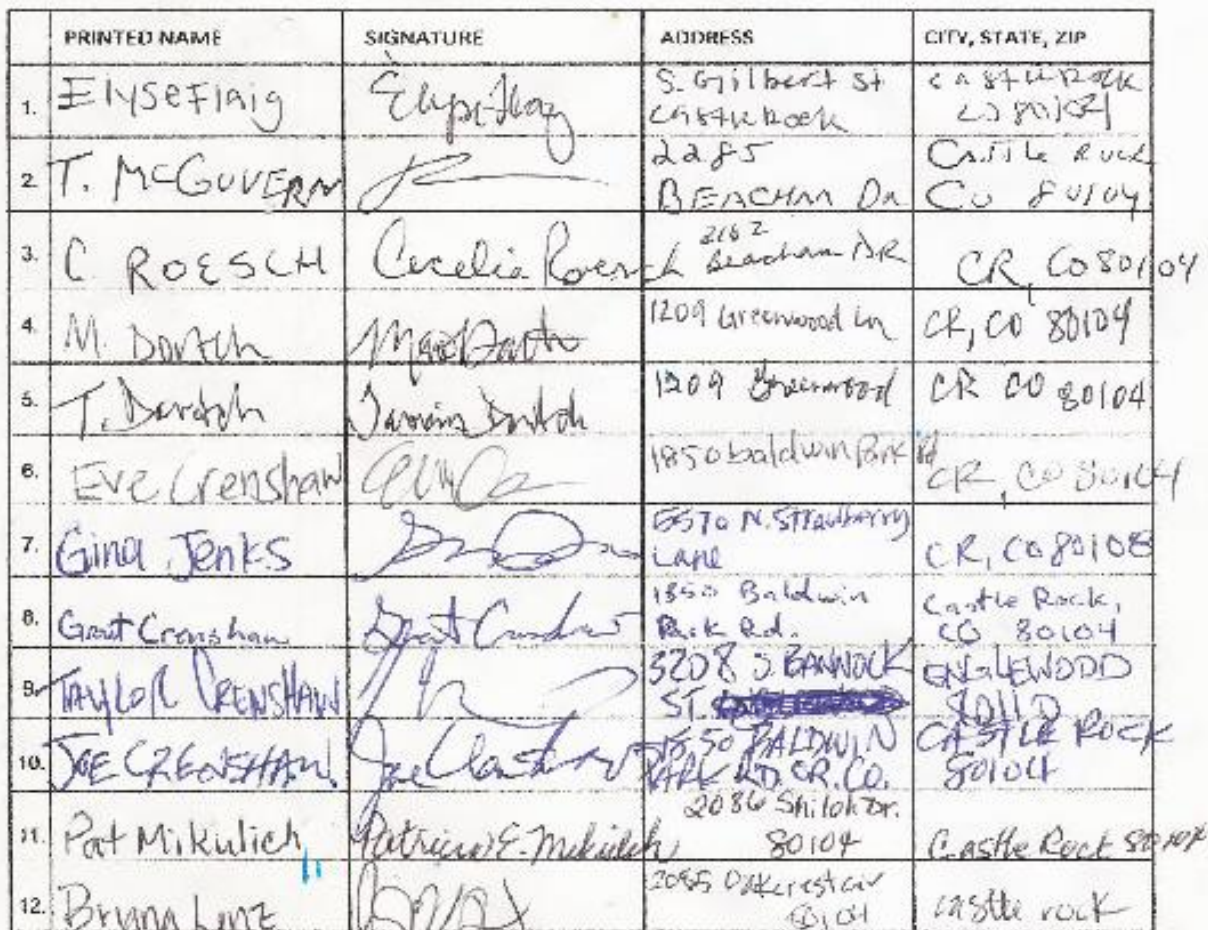 PRINTED NAME SIGNATURE ADDRESS CITY, STATE, ZIP
1. Elyse Flaig S. Gilbert St Castle Rock
Castle Rock CO 80104
2. T. McGOVERN 2285 Castle Rock
BEACHAM DR CO 80104
3. C ROESCH Cecelia Roesch 2162
Beacham DR CR, CO 80104
4. M. Dortch 1209 Greenwood Ln CR, CO 80104
5. T. Dortch Dortch 1209 Greenwood CR CO 80104
6. Eve Crenshaw 1850 baldwin Park Rd CR, CO 80104
7. Gina Jenks 5570 N. Strawberry
Lane CR, CO 80108
8. Grant Crenshaw Grant Crenshaw 1850 Baldwin Castle Rock,
Park Rd. CO 80104
9. TAYLOR CRENSHAW 3208 S. BANNOCK ENGLEWOOD
ST. 80110
10. JOE CRENSHAW Joe Crenshaw BALDWIN CASTLE ROCK
PARK RD. CR. CO. 80104
11. Pat Mikulich Patricia E. Mikulich 2086 Shiloh Dr.
80104 Castle Rock 80104
12. Bryna Lenz Oakcrest cir
80104 castle rock